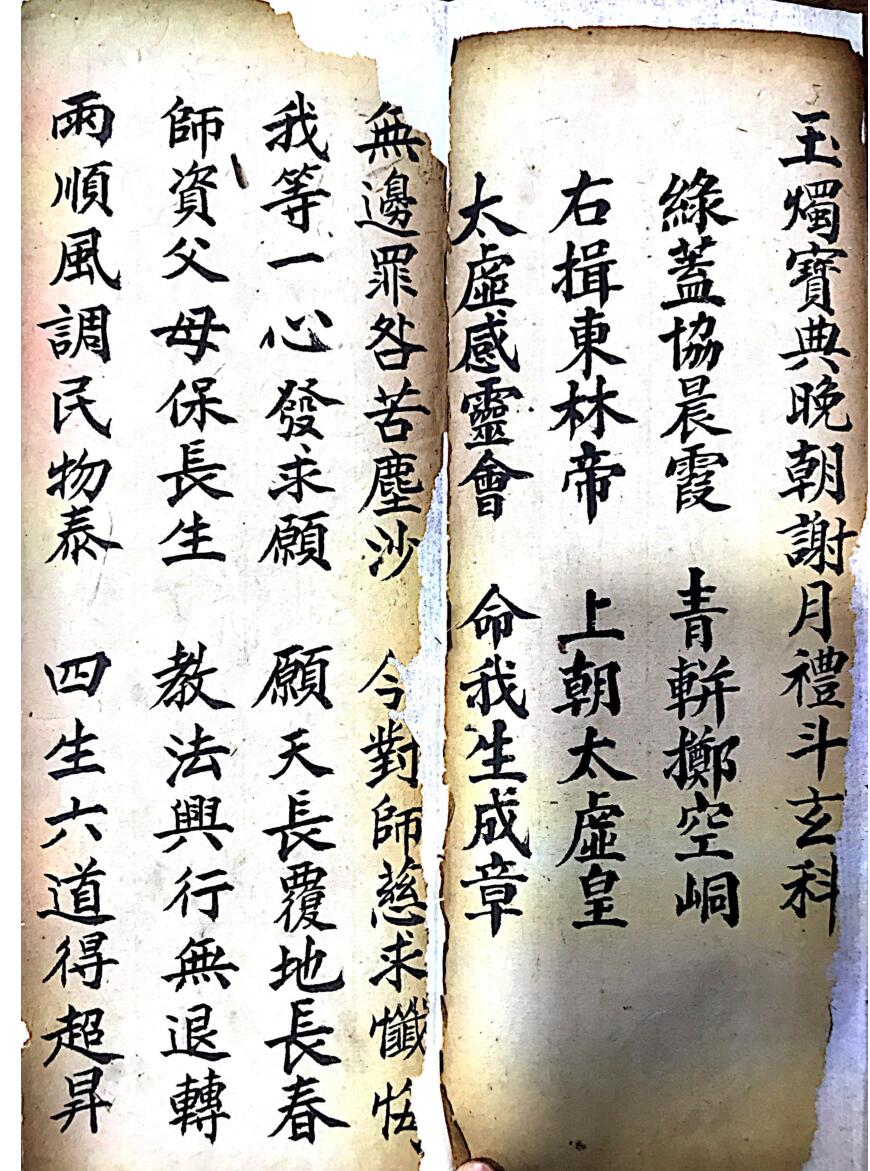 玉燭寶典晚朝謝月禮斗玄科
綠蓋協晨霞　青軿擲空峒
右揖東林帝　上朝太虛皇
太虛感靈會　命我生成章
無邊罪咎苦塵沙　今對師慈求懺悔
我等一心發求願　願天長覆地長春
師資父母保長生　教法興行無退轉
雨順風調民物泰　四生六道得超昇